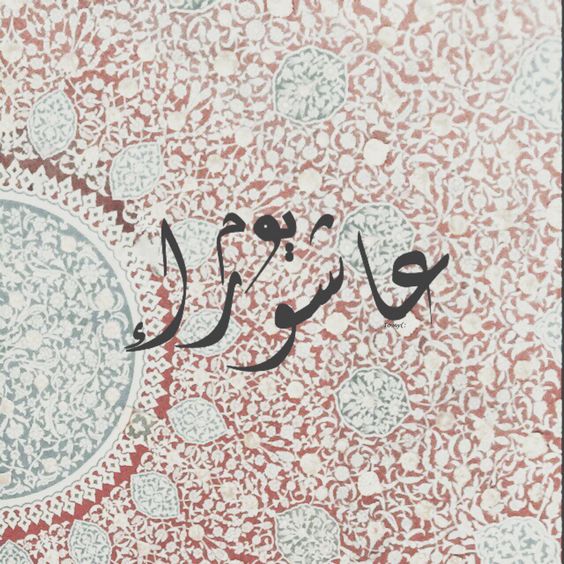 يوم
عاشوراء